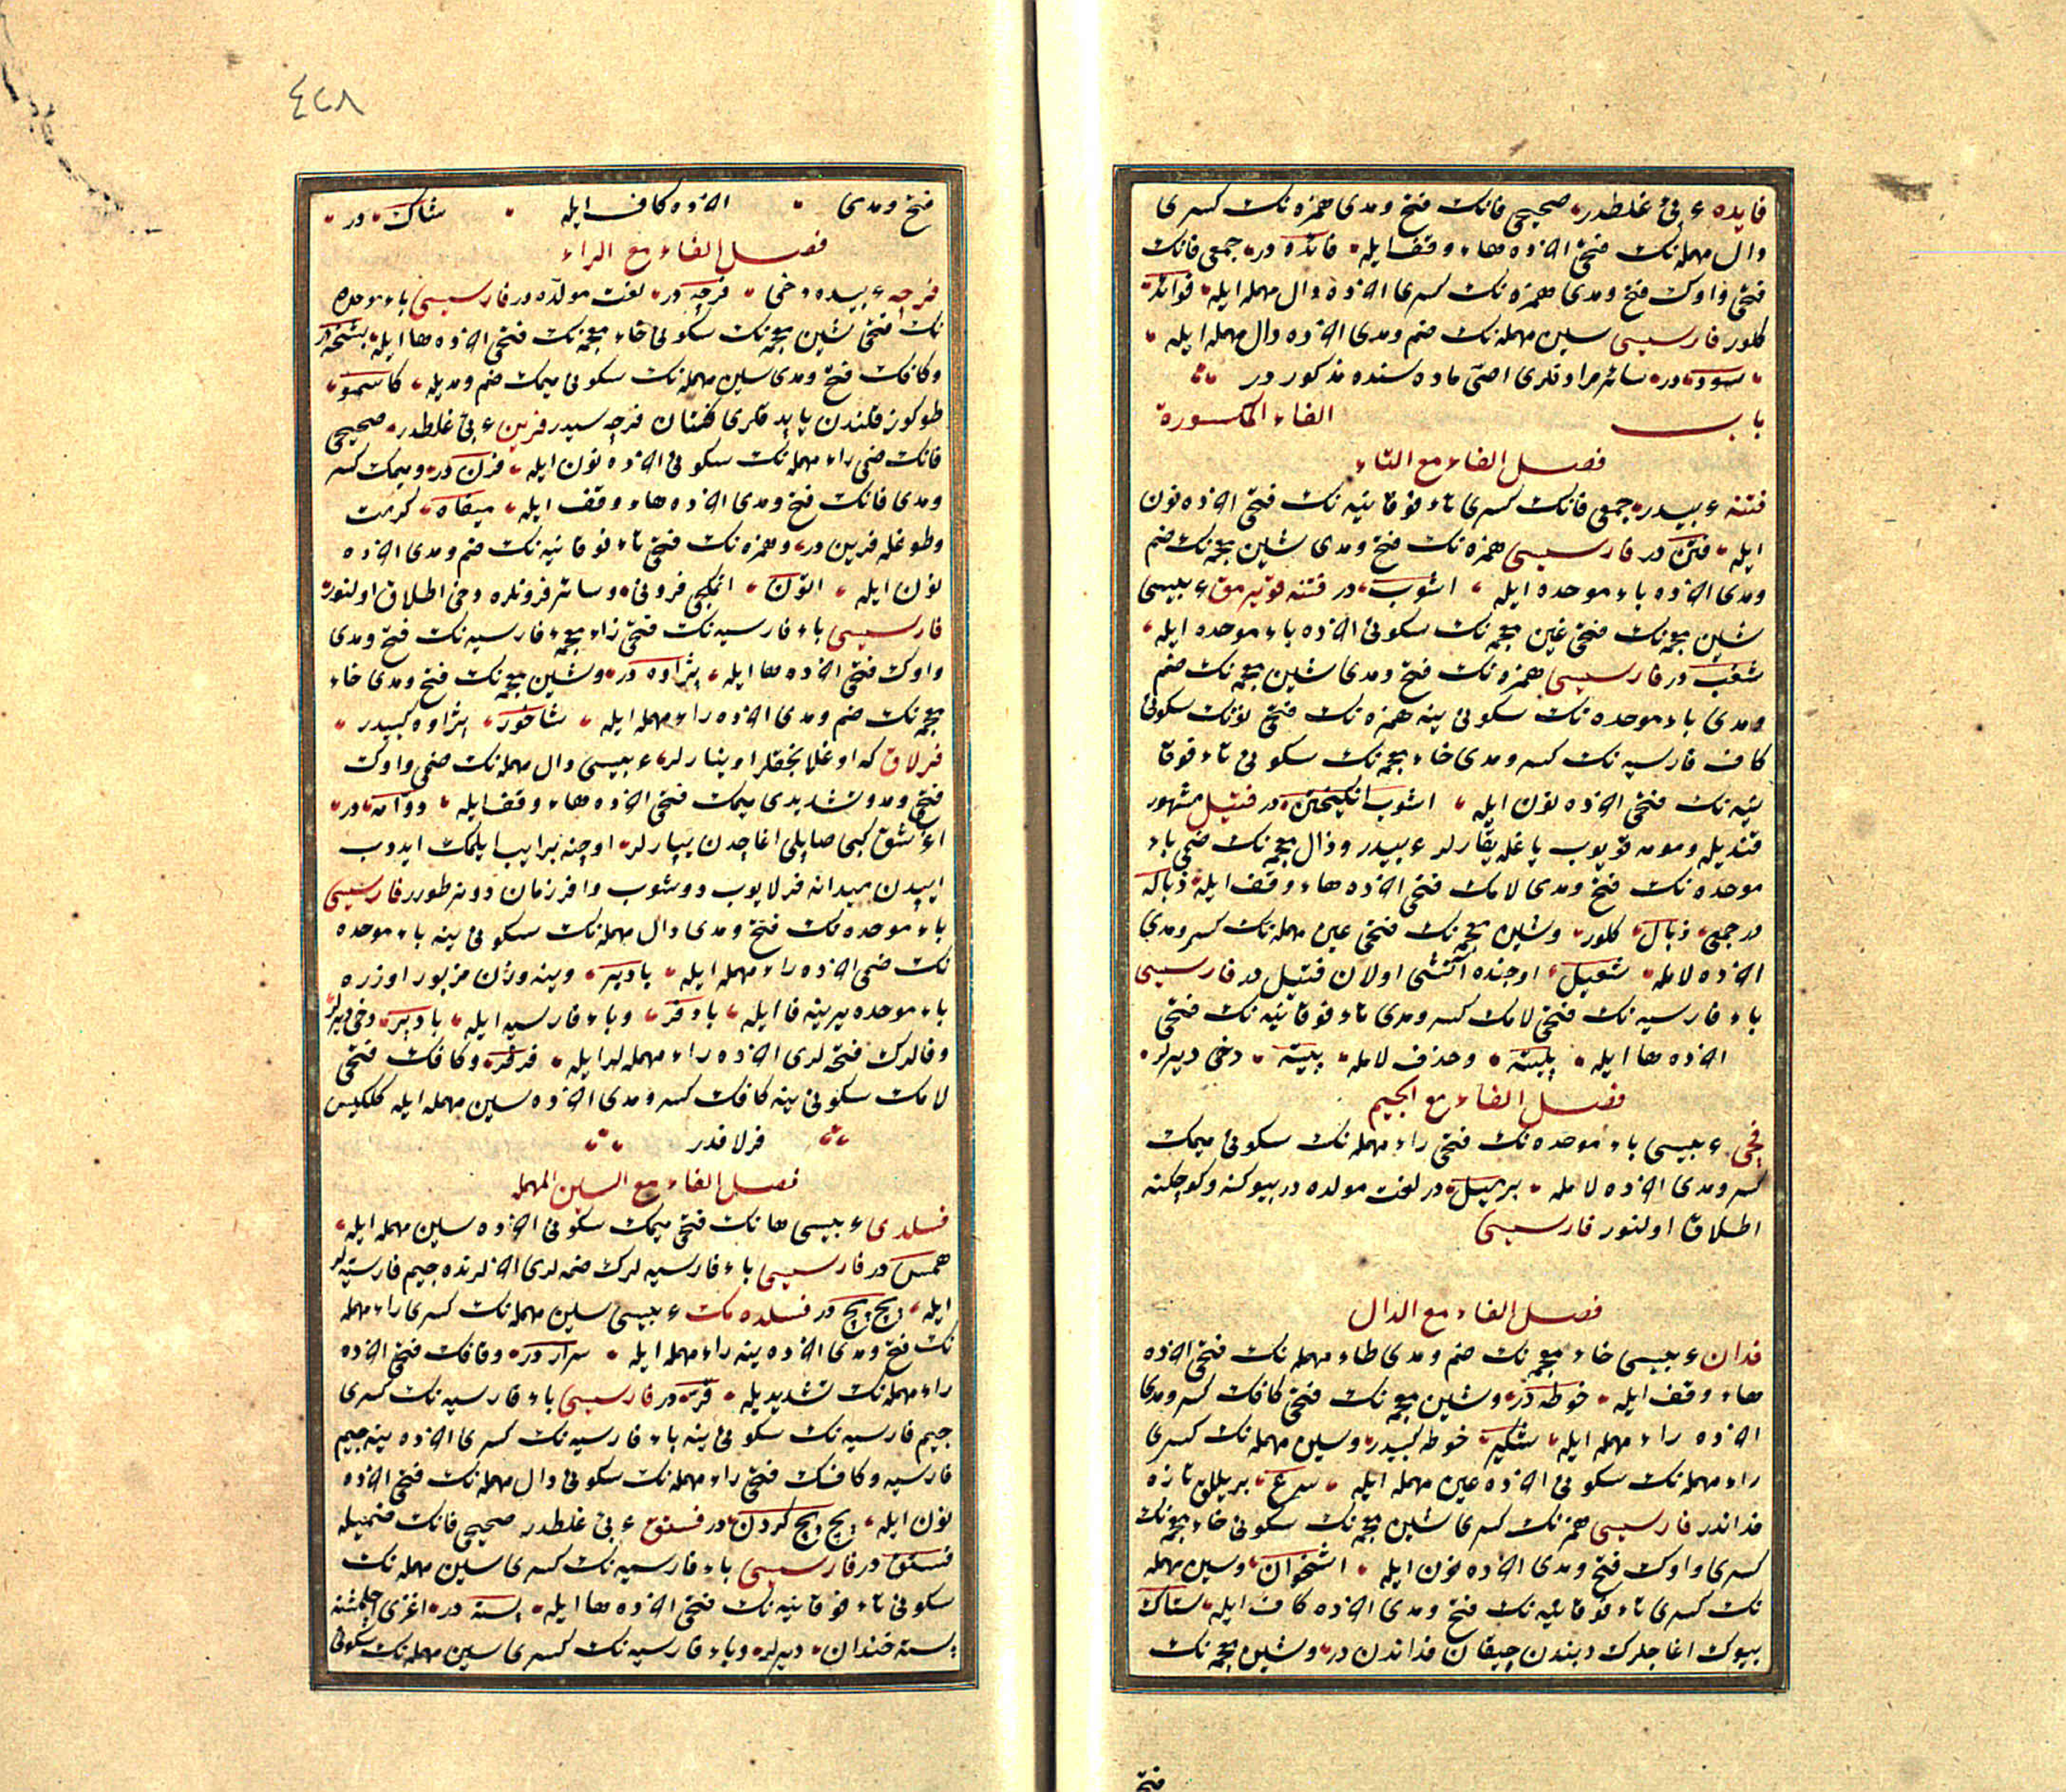 فايده ء بى غلطدر صحيحى فانك فتح ومدى همزه نك كسرى
دال مهمله نك فتحى اخرده هاء وقف ايله فائده در جمعى فانك
فتحى واوك فتح ومدى همزه نك كسرى اخرده دال مهمله ايله فوائد
كلور فارسيسى سين مهمله نك ضم ومدى اخرده دال مهمله ايله
سود در سائر مرادفلرى اصى ماده سنده مذكور در
باب الفاء المكسورة
فصل الفاء مع التاء
فتنه ء بيدر جمعى فانك كسرى تاء فوقانيه نك فتحى اخرده نون
ايله فتن در فارسيسى همزه نك فتح ومدى شين معجمه نك ضم
ومدى اخرده باء موحده ايله اشوب در فتنه قوپرمق ء بيسى
شين معجمه نك فتحى غين معجمه نك سكونى اخرده باء موحده ايله
شغب در فارسيسى همزه نك فتح ومدى شين معجمه نك ضم
ومدى باء موحده نك سكونى ينه همزه نك فتحى نونك سكونى
كاف فارسيه نك كسر ومدى خاء معجمه نك سكونى تاء فوقا
نيه نك فتحى اخرده نون ايله اشوب انكيختن در فتيل مشهور
قنديله ومومه قويوب ياغله يقارلر ء بيدر وذال معجمه نك ضمى باء
موحده نك فتح ومدى لامك فتحى اخرده هاء وقف ايله ذباله
در جمعى ذبال كلور وشين معجمه نك فتحى عين مهمله نك كسر ومدى
اخرده لامله شعيل اوجنده آتشى اولان فتيل در فارسيسى
باء فارسيه نك فتحى لامك كسر ومدى تاء فوقانيه نك فتحى
اخرده ها ايله پليته وحذف لامله پيته دخى ديرلر
فصل الفاء مع الجيم
فچى ء بيسى باء موحده نك فتحى راء مهمله نك سكونى ميمك
كسر ومدى اخرده لامله برميل در لغت مولده در بيوكنه وكوچكنه
اطلاق اولنور فارسيسى
فصل الفاء مع الدال
فدان ء بيسى خاء معجمه نك ضم ومدى طاء مهمله نك فتحى اخرده
هاء وقف ايله خوطه در وشين معجمه نك فتحى كافك كسر ومدى
اخرده راء مهمله ايله شكير خوطه كبيدر وسين مهمله نك كسرى
راء مهمله نك سكونى اخرده عين مهمله ايله سرع بر ييللق تازه
فداندر فارسيسى همزه نك كسرى شين معجمه نك سكونى خاء معجمه نك
كسرى واوك فتح ومدى اخرده نون ايله اشخوان وسين مهمله
نك كسرى تاء فوقانيه نك فتح ومدى اخرده كاف ايله ستاك
بيوك اغاجلرك ديبندن چيقان فداندن در وشين معجمه نك
فتح
٤٢٨
فتح ومدى اخرده كاف ايله شاك در
فصل الفاء مع الراء
فرجه ء بيده دخى فرجه در لغت مولده در فارسيسى باء موحده
نك فتحى شين معجمه نك سكونى خاء معجمه نك فتحى اخرده ها ايله بشخه در
وكافك فتح ومدى سين مهمله نك سكونى ميمك ضم ومديله كاسمو
طوكوز قلندن ياپدقلرى فرجه سيدر فرين ء بى غلطدر صحيحى
فانك ضمى راء مهمله نك سكونى اخرده نون ايله فرن در وميمك كسر
ومدى فانك فتح ومدى اخرده هاء وقف ايله ميفاه كرمت
وطوغله فرين در وهمزه نك فتحى تاء فوقانيه نك ضم ومدى اخرده
نون ايله اتون اتمكجى فرونى وسائر فرونلره دخى اطلاق اولنور
فارسيسى باء فارسيه نك فتحى زاء معجمه فارسيه نك فتح ومدى
واوك فتحى اخرده ها ايله پژاوه در وشين معجمه نك فتح ومدى خاء
معجمه نك ضم ومدى اخرده راء مهمله ايله شاخور پژاوه كبيدر
فرلاق كه اوغلانجقلر اوينارلر ء بيسى دال مهمله نك ضمى واوك
فتح ومد وتشديدى ميمك فتحى اخرده هاء وقف ايله دوامه در
كبى صاپلى اغاجدن ياپارلر اوجنه بر ايپ ايلمك ايدوب
ايپيدن ميدانه فرلايوب دوشوب وافر زمان دونر طورر فارسيسى
باء موحده نك فتح ومدى دال مهمله نك سكونى ينه باء موحده
نك ضمى اخرده راء مهمله ايله بادبر وينه وزن مزبور اوزره
باء موحده يرينه فا ايله بادفر وباء فارسيه ايله بادپر دخى ديرلر
وفالرك فتحه لرى اخرده راء مهمله لر ايله فرفر وكافك فتحى
لامك سكونى ينه كافك كسر ومدى اخرده سين مهمله ايله كلكيس
فرلاقدر
فصل الفاء مع السين المهمله
فسلدى ء بيسى هانك فتحى ميمك سكونى اخرده سين مهمله ايله
همس در فارسيسى باء فارسيه لرك ضمه لرى اخرلرنده جيم فارسيه لر
ايله پچ پچ در فسلده مك ء بيسى سين مهمله نك كسرى راء مهمله
نك فتح ومدى اخرده ينه راء مهمله ايله سرار در وقافك فتحى اخرده
راء مهمله نك تشديديله قر در فارسيسى باء فارسيه نك كسرى
جيم فارسيه نك سكونى ينه باء فارسيه نك كسرى اخرده ينه جيم
فارسيه وكافك فتحى راء مهمله نك سكونى دال مهمله نك فتحى اخرده
نون ايله پچ پچ كردن در فستق ء بى غلطدر صحيحى فانك ضميله
فستق در فارسيسى باء فارسيه نك كسرى سين مهمله نك
سكونى تاء فوقانيه نك فتحى اخرده ها ايله پسته در اغزى اچلمشنه
پسته خندان ديرلر وباء فارسيه نك كسرى سين مهمله نك سكونى